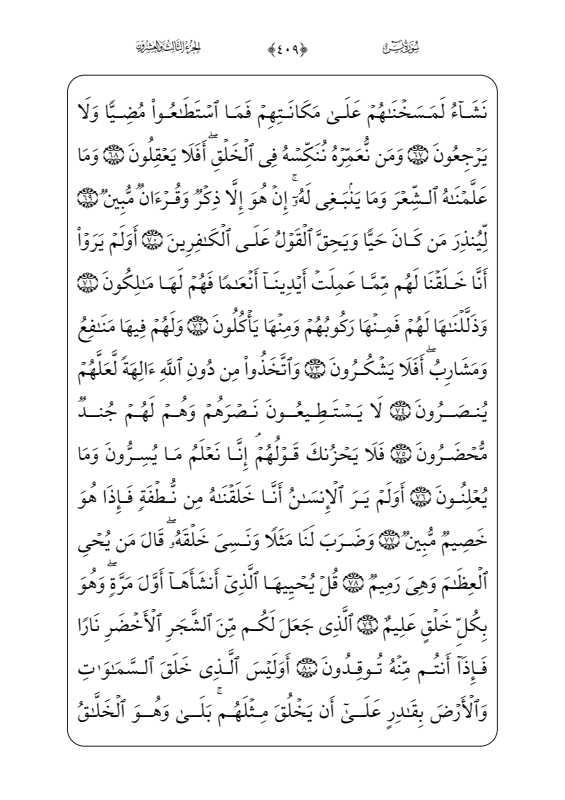 سُورَةُ يسٓ ﴿٤٠٩﴾ الجُزْءُ الثَّالِثُ وَالعِشْرُونَ
نَشَآءُ لَمَسَخْنَٰهُمْ عَلَىٰ مَكَانَتِهِمْ فَمَا ٱسْتَطَٰعُوا۟ مُضِيًّا وَلَا
يَرْجِعُونَ ۝٦٧ وَمَن نُّعَمِّرْهُ نُنَكِّسْهُ فِى ٱلْخَلْقِ ۖ أَفَلَا يَعْقِلُونَ ۝٦٨ وَمَا
عَلَّمْنَٰهُ ٱلشِّعْرَ وَمَا يَنۢبَغِى لَهُۥٓ ۚ إِنْ هُوَ إِلَّا ذِكْرٌ وَقُرْءَانٌ مُّبِينٌ ۝٦٩
لِّيُنذِرَ مَن كَانَ حَيًّا وَيَحِقَّ ٱلْقَوْلُ عَلَى ٱلْكَٰفِرِينَ ۝٧٠ أَوَلَمْ يَرَوْا۟
أَنَّا خَلَقْنَا لَهُم مِّمَّا عَمِلَتْ أَيْدِينَآ أَنْعَٰمًا فَهُمْ لَهَا مَٰلِكُونَ ۝٧١
وَذَلَّلْنَٰهَا لَهُمْ فَمِنْهَا رَكُوبُهُمْ وَمِنْهَا يَأْكُلُونَ ۝٧٢ وَلَهُمْ فِيهَا مَنَٰفِعُ
وَمَشَارِبُ ۖ أَفَلَا يَشْكُرُونَ ۝٧٣ وَٱتَّخَذُوا۟ مِن دُونِ ٱللَّهِ ءَالِهَةً لَّعَلَّهُمْ
يُنصَرُونَ ۝٧٤ لَا يَسْتَطِيعُونَ نَصْرَهُمْ وَهُمْ لَهُمْ جُندٌ
مُّحْضَرُونَ ۝٧٥ فَلَا يَحْزُنكَ قَوْلُهُمْ ۘ إِنَّا نَعْلَمُ مَا يُسِرُّونَ وَمَا
يُعْلِنُونَ ۝٧٦ أَوَلَمْ يَرَ ٱلْإِنسَٰنُ أَنَّا خَلَقْنَٰهُ مِن نُّطْفَةٍ فَإِذَا هُوَ
خَصِيمٌ مُّبِينٌ ۝٧٧ وَضَرَبَ لَنَا مَثَلًا وَنَسِىَ خَلْقَهُۥ ۖ قَالَ مَن يُحْىِ
ٱلْعِظَٰمَ وَهِىَ رَمِيمٌ ۝٧٨ قُلْ يُحْيِيهَا ٱلَّذِىٓ أَنشَأَهَآ أَوَّلَ مَرَّةٍ ۖ وَهُوَ
بِكُلِّ خَلْقٍ عَلِيمٌ ۝٧٩ ٱلَّذِى جَعَلَ لَكُم مِّنَ ٱلشَّجَرِ ٱلْأَخْضَرِ نَارًا
فَإِذَآ أَنتُم مِّنْهُ تُوقِدُونَ ۝٨٠ أَوَلَيْسَ ٱلَّذِى خَلَقَ ٱلسَّمَٰوَٰتِ
وَٱلْأَرْضَ بِقَٰدِرٍ عَلَىٰٓ أَن يَخْلُقَ مِثْلَهُم ۚ بَلَىٰ وَهُوَ ٱلْخَلَّٰقُ